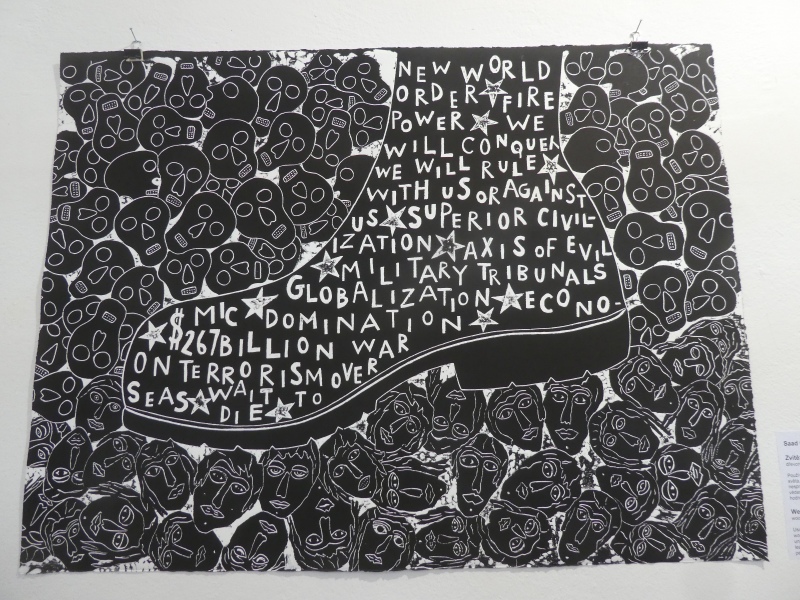 NEW WORLD
ORDER ☆ FIRE
POWER ☆ WE
WILL CONQUER
WE WILL RULE ☆
WITH US OR AGAINST
US ☆ SUPERIOR CIVIL-
IZATION ☆ AXIS OF EVIL
☆ MILITARY TRIBUNALS
GLOBALIZATION ☆ ECONO-
MIC ☆ DOMINATION ☆
☆ $267 BILLION WAR
ON TERRORISM OVER
SEAS ☆ WAIT TO
DIE ☆
Saad